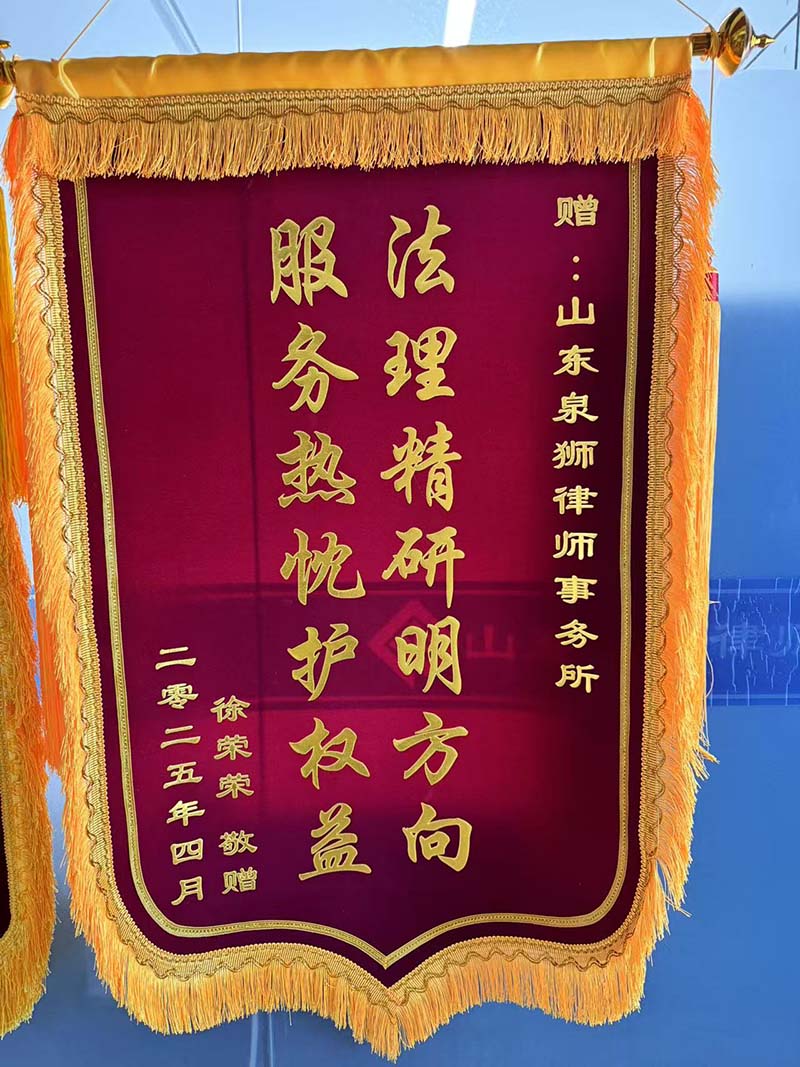 赠：山东泉狮律师事务所
法理精研明方向
服务热忱护权益
徐荣荣 敬赠
二零二五年四月
山
律师